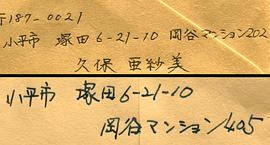 〒187-0021
小平市 塚田6-21-10 岡谷マンション202
久保 亜紗美
小平市 塚田6-21-10
岡谷マンション405